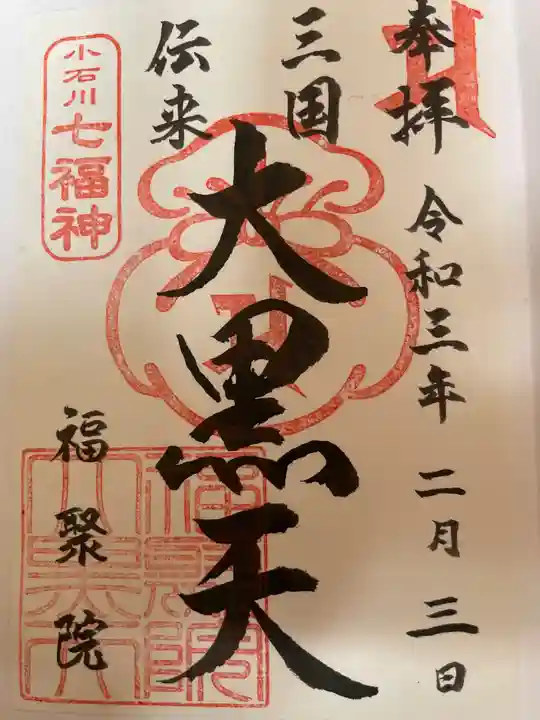 奉拝
令和三年 二月 三日
三国
伝来
大黒天
小石川
七福神
福聚院